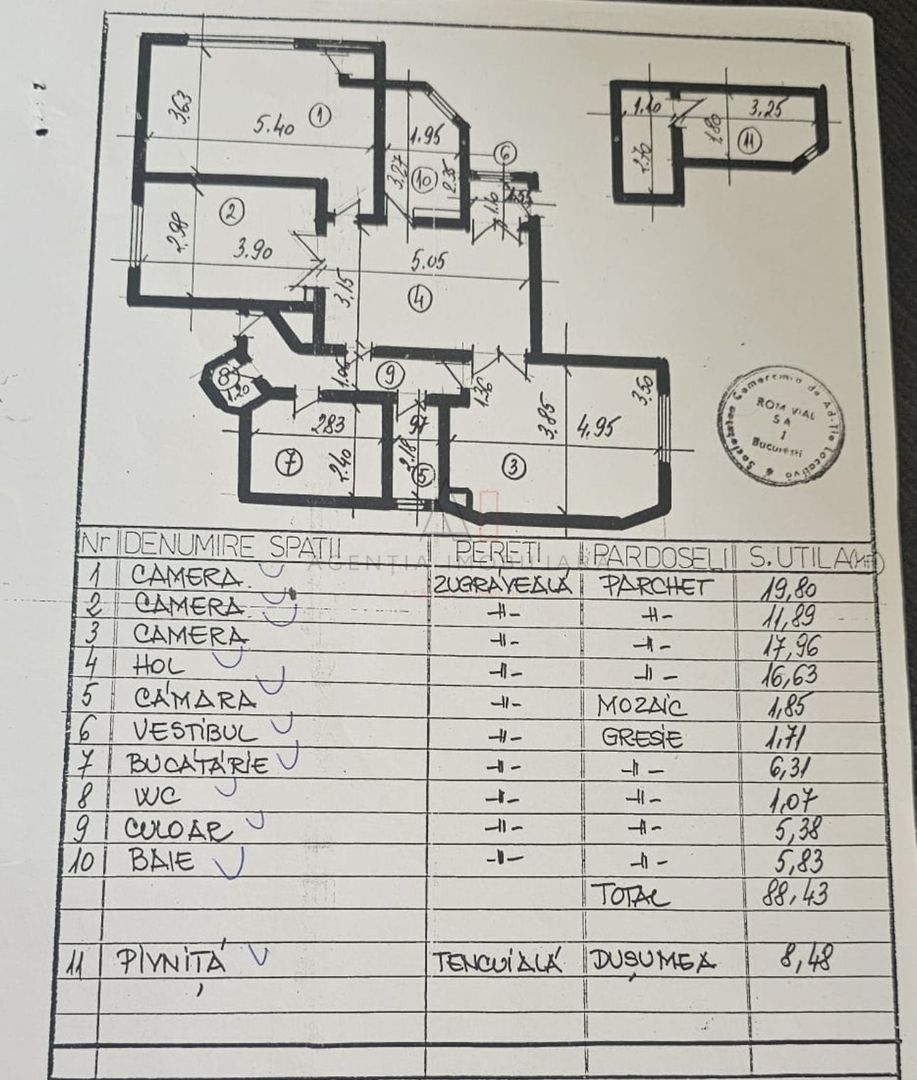 3.63
5.40
1
1.95
3.27
10
2.35
6
1.10
1.55
1.10
3.25
1.80
1.70
11
2
2.98
3.90
5.05
3.15
4
8
1.20
9
1.06
1.56
283
2.40
7
97
2.18
5
3.85
4.95
3.50
3
Societatea Comercială de Ad-ție Locativă
ROM VIAL
SA
1
București
AGENȚIA IMOBILIARĂ
Nr DENUMIRE SPAȚII PEREȚI PARDOSELI S. UTILĂ (MP)
1 CAMERĂ ZUGRĂVEALĂ PARCHET 19,80
2 CAMERĂ -||- -||- 11,89
3 CAMERA -||- -||- 17,96
4 HOL -||- -||- 16,63
5 CĂMARA -||- MOZAIC 1,85
6 VESTIBUL -||- GRESIE 1,71
7 BUCĂTĂRIE -||- -||- 6,31
8 WC -||- -||- 1,07
9 CULOAR -||- -||- 5,38
10 BAIE -||- -||- 5,83
TOTAL 88,43
11 PIVNIȚĂ TENCUIALĂ DUȘUMEA 8,48